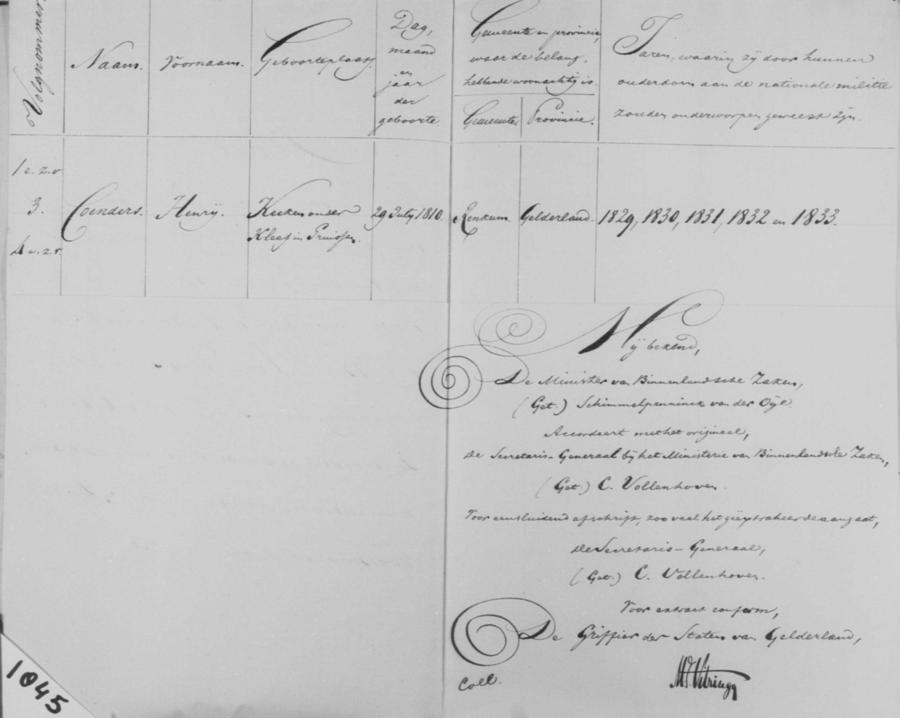 Volgnommers.
Naam.
Voornaam.
Geboorteplaats.
Dag,
maand
en
jaar
der
geboorte.
Gemeente en provincie,
waar de belang-
hebbende woonachtig is.
Gemeente.
Provincie.
Jaren, waarin zij door hunnen
ouderdom aan de nationale militie
zouden onderworpen geweest zijn.
1 e.z.v.
3.
4 e.z.v.
Coenders.
Henry.
Keeken onder
Kleef in Pruissen.
29 July 1810.
Renkum.
Gelderland.
1829, 1830, 1831, 1832 en 1833.
Mij bekend,
De Minister van Binnenlandsche Zaken,
(Get.) Schimmelpenninck van der Oije.
Accordeert met het origineel,
De Secretaris-Generaal bij het Ministerie van Binnenlandsche Zaken,
(Get.) C. Vollenhoven.
Voor eensluidend afschrift, zoo veel het geëxtraheerde aangaat,
De Secretaris-Generaal,
(Get.) C. Vollenhoven.
Voor extract conform,
De Griffier der Staten van Gelderland,
Coll.
1045